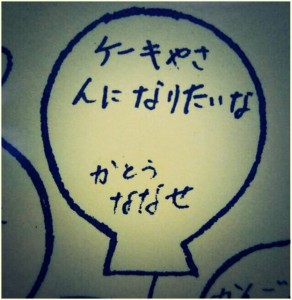 ケーキやさ
んになりたいな
かとう
ななせ